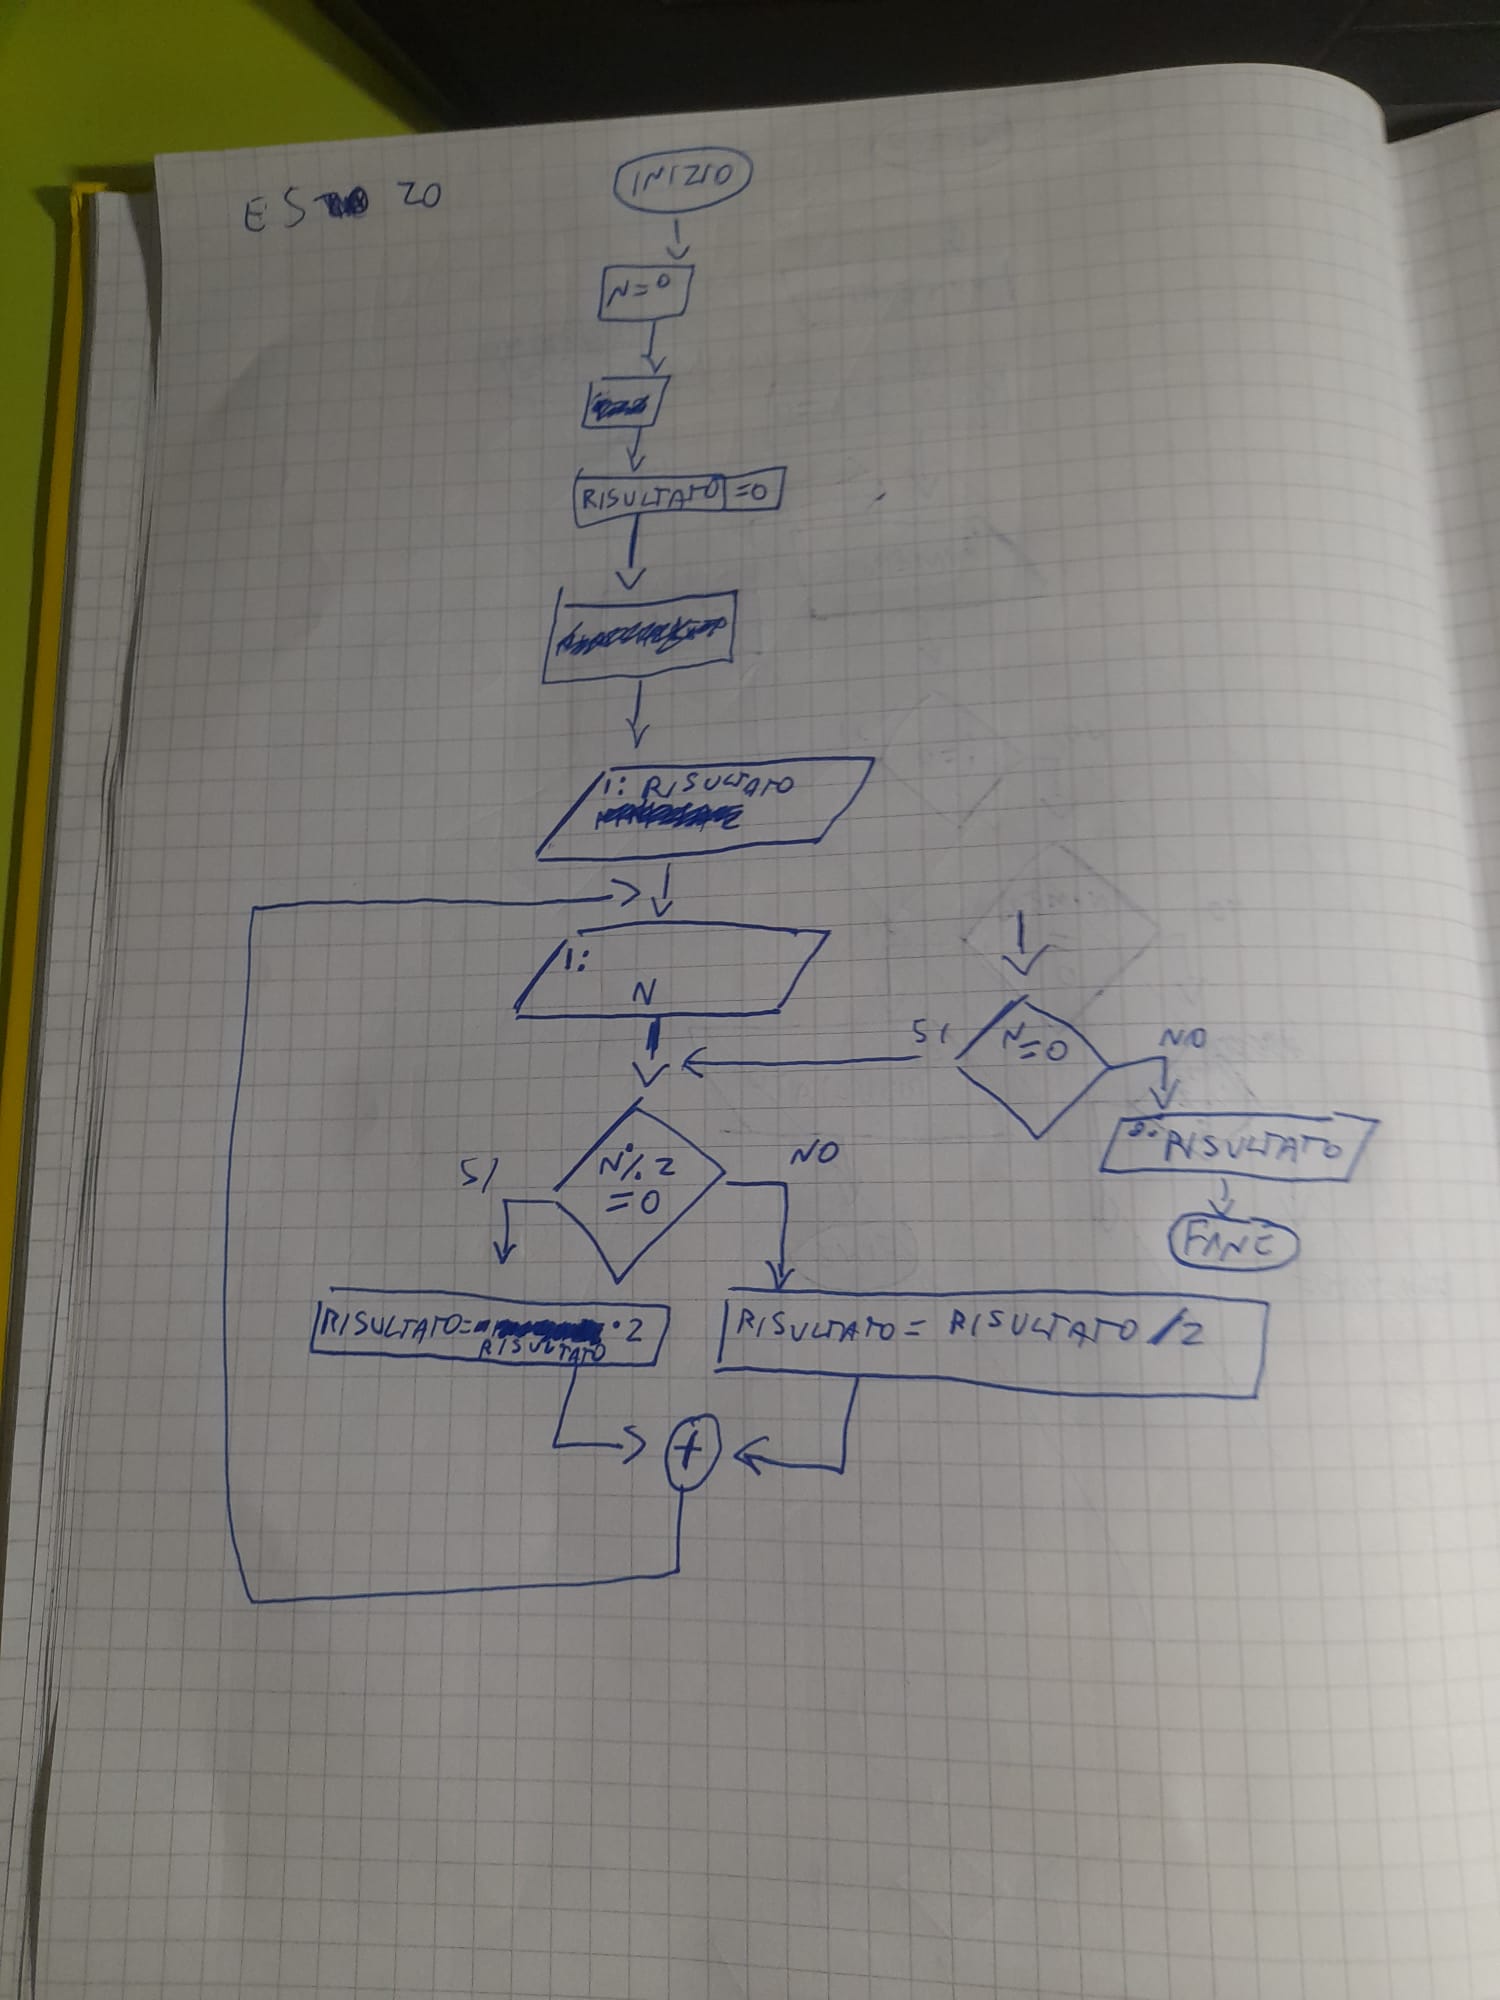 ES 20
INIZIO
N=0
RISULTATO =0
I: RISULTATO
I:
N
N=0
SI
NO
O: RISULTATO
FINE
N%2
=0
SI
NO
RISULTATO= RISULTATO ·2
RISULTATO = RISULTATO /2
+